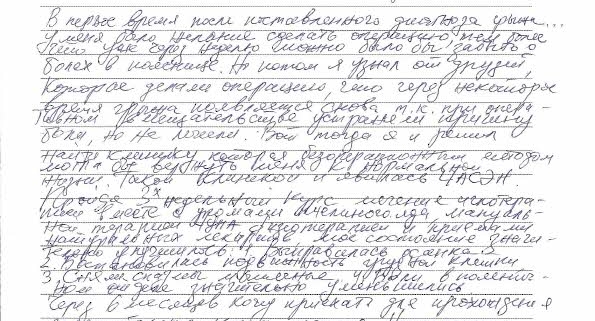 В первое время после поставленного диагноза грыжа...
у меня было желание сделать операцию тем более
что уже через неделю можно было бы забыть о
болях в пояснице. Но потом я узнал от друзей,
которые делали операцию, что через некоторое
время грыжа появляется снова т.к. при опера-
тивном вмешательстве устраняли причину
боли, но не лечили. Вот тогда я и решил
найти клинику которая безоперационным методом
могла бы вернуть меня к нормальной
жизни. Такой клиникой и явилась
Пройдя 3х недельный курс лечение иглотера-
пией вместе с уколами пчелиного яда, мануаль-
ной терапией и приёмами
натуральных лекарств мое состояние значи-
тельно улучшилось 1. выправилась осанка
2. Восстановилась подвижность грудной клетки
3. боли в пояснич-
ном отделе значительно уменьшились
Через 6 месяцев хочу приехать для прохождения